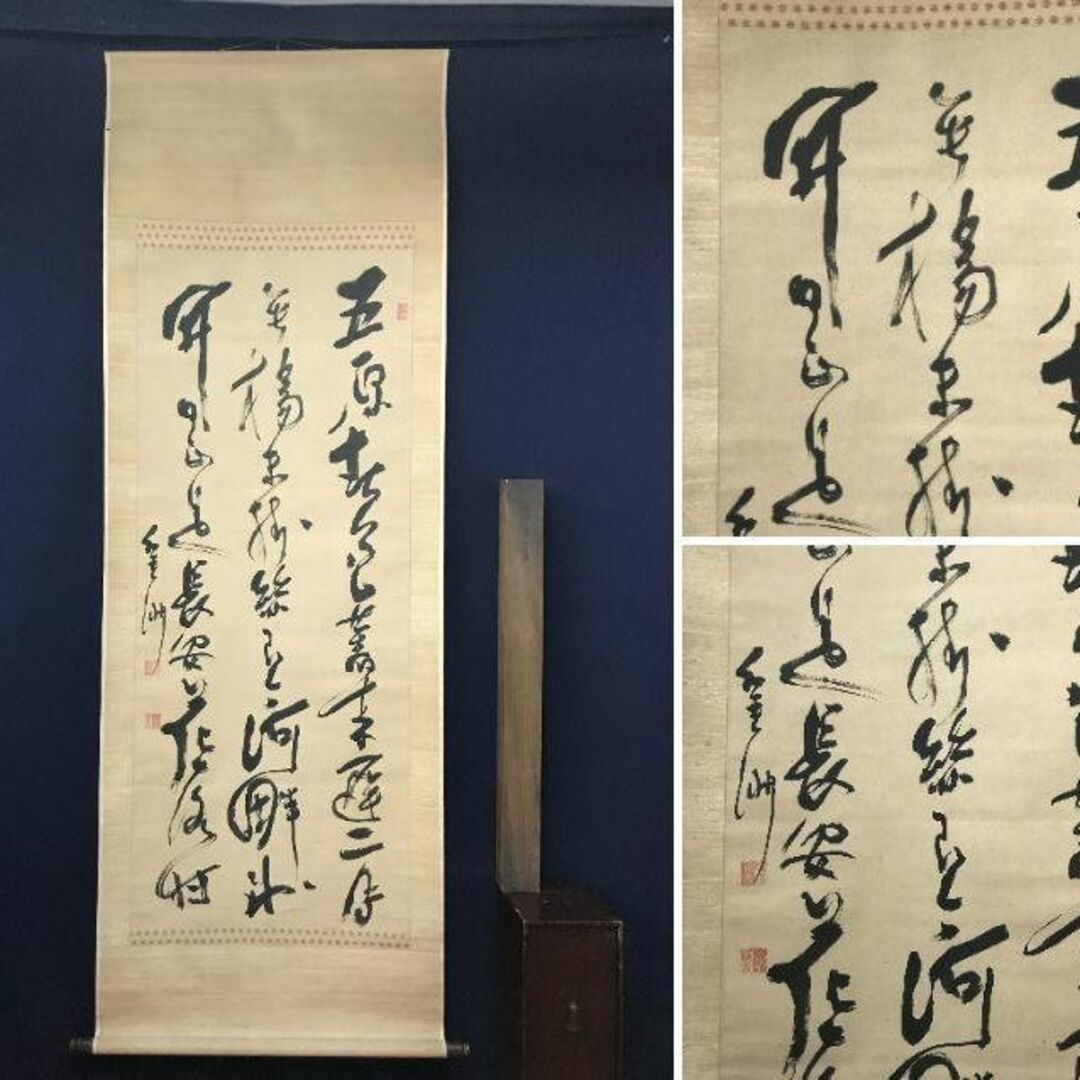 五原春色舊来遲二月
垂楊未掛絲即今河畔冰
開日正是長安花落時